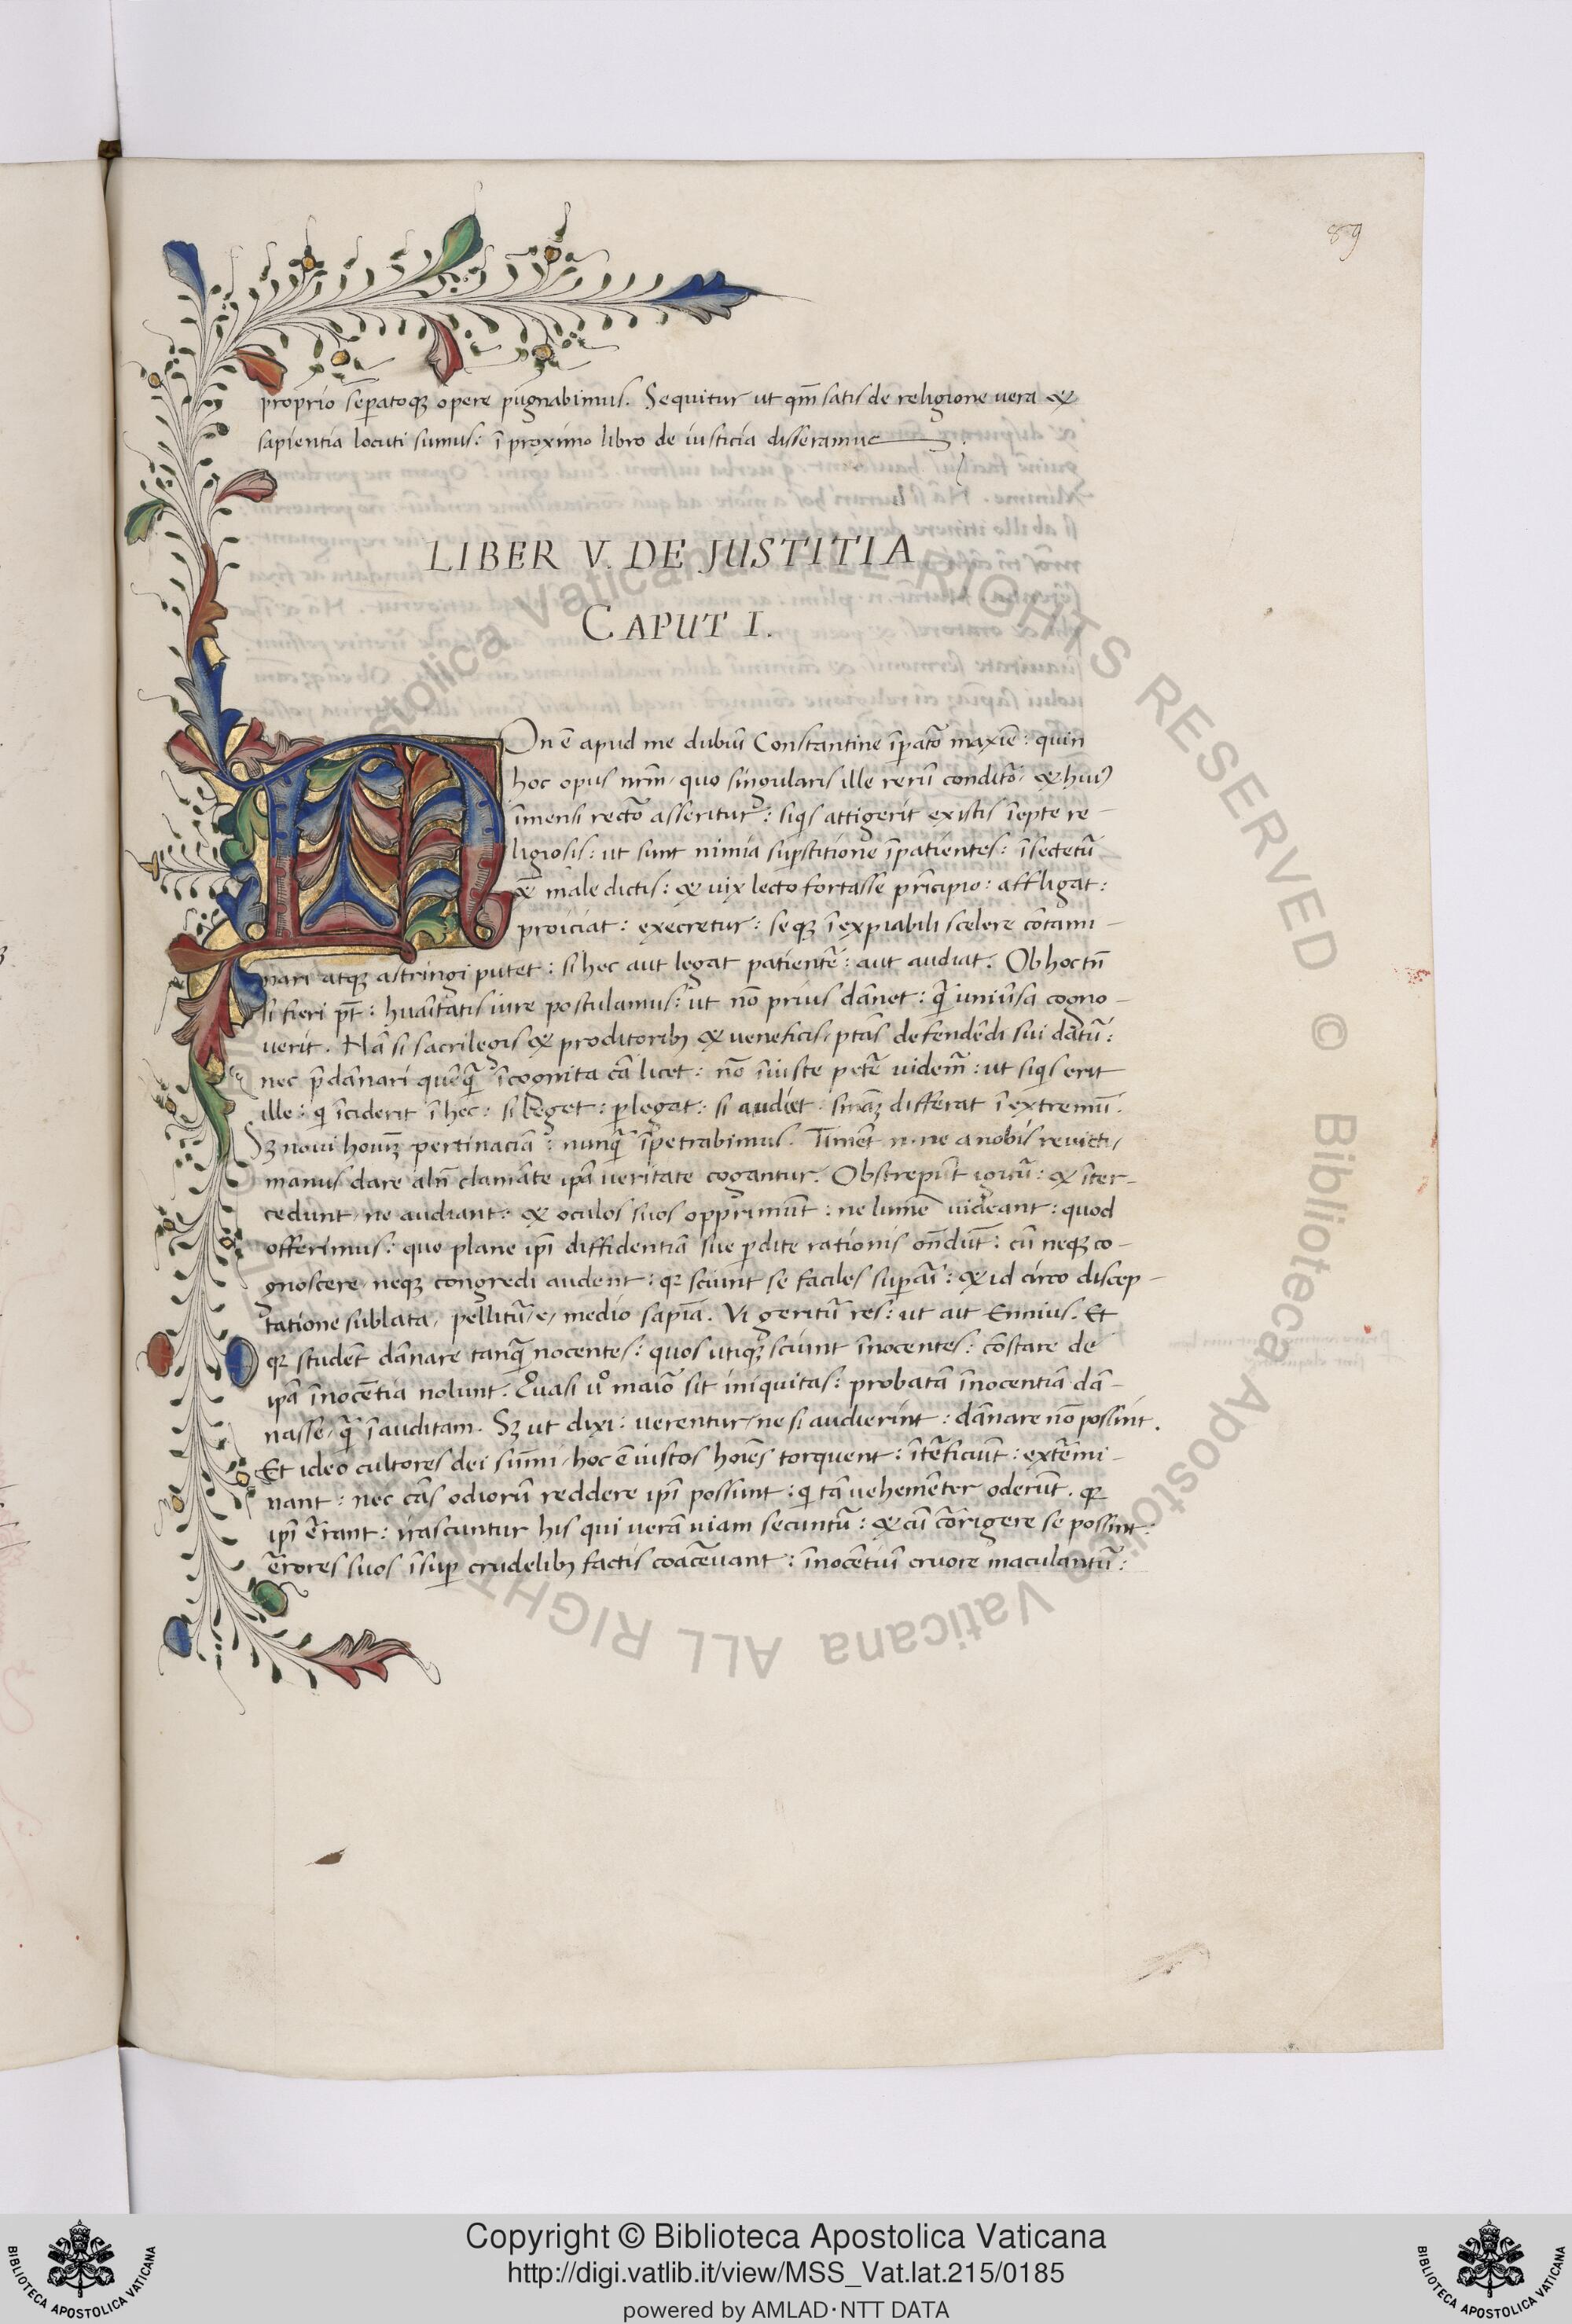 89
proprio sepatoqꝫ opere pugnabimus. Sequitur ut qm̄ satis de religione uera &
sapientia locuti sumus: ī proximo libro de iusticia disseramus
LIBER V. DE JUSTITIA
CAPUT I.
NOn ē apud me dubiū Constantine īpatō maxīe: quin
hoc opus nr̄m, quo singularis ille rerū conditō, & huiꝰ
īmensi rectō asseritur: siqis attigerit ex istis īepte re-
ligiosis: ut sunt nimia supstitione īpatientes: īsectetū
& maledictis: & uix lecto fortasse prīcipio: affligat:
proiciat: execretur: seqꝫ īexpiabili scelere cōtami-
nari atqꝫ astringi putet: si hec aut legat patientē: aut audiat. Ob hoc tn̄
si fieri pt̄: huāitatis iure postulamus: ut nō prius dānet: qā uniūsa cogno-
uerit. Nā si sacrilegis & proditoribꝫ & ueneficis, ptās defendēdi sui datū:
nec p̄dānari quēqā īcognita cā licet: nō īiuste petē uidem̄: ut siqis erit
ille: qi īciderit ī hec: si leget: plegat: si audiet: sn̄aꝫ differat ī extremū.
Sꝫ noui hoıuꝫ pertinaciā: nunqā īpetrabimus. Timēt n. ne a nobis reuicti,
manus dare alīn clamāte ipā ueritate cogantur. Obstrepūt igitū: & īter-
cedunt, ne audiant: & oculos suos opprimūt: ne lumē uideant: quod
offerimus: quo plane ipī diffidentiā sue pdite rationis on̄dūt: cū neqꝫ co-
gnoscere, neqꝫ congredi audent: qꝛ sciunt se faciles supāi: & id circo discep-
tatione sublata, pellitū, e, medio sapīa. Vi geritū res: ut ait Ennius. Et
qꝛ studēt dānare tanqā nocentes: quos utiqꝫ sciunt īnocentes: cōstare de
ipā īnocētia nolunt. Quasi uº maiō sit iniquitas: probatā īnocentiā dā-
nasse, qā īauditam. Sꝫ ut dixi: uerentur, ne si audierint: dānare nō possint.
Et ideo cultores dei sūmi, hoc ē iustos hoīes torquent: ītēficiūt: extēmi-
nant: nec cās odiorū reddere ipī possunt: qi tā uehemēter oderūt. qꝛ
ipī ērant: irascuntur his qui uerā uiam secuntū: & cū cōrigere se possint:
ērores suos īsup crudelibꝫ factis coacēuant: īnocētiū cruore maculantū:
Copyright © Biblioteca Apostolica Vaticana
http://digi.vatlib.it/view/MSS_Vat.lat.215/0185
powered by AMLAD·NTT DATA
BIBLIOTECA APOSTOLICA VATICANA
BIBLIOTECA APOSTOLICA VATICANA
© Biblioteca Apostolica Vaticana ALL RIGHTS RESERVED